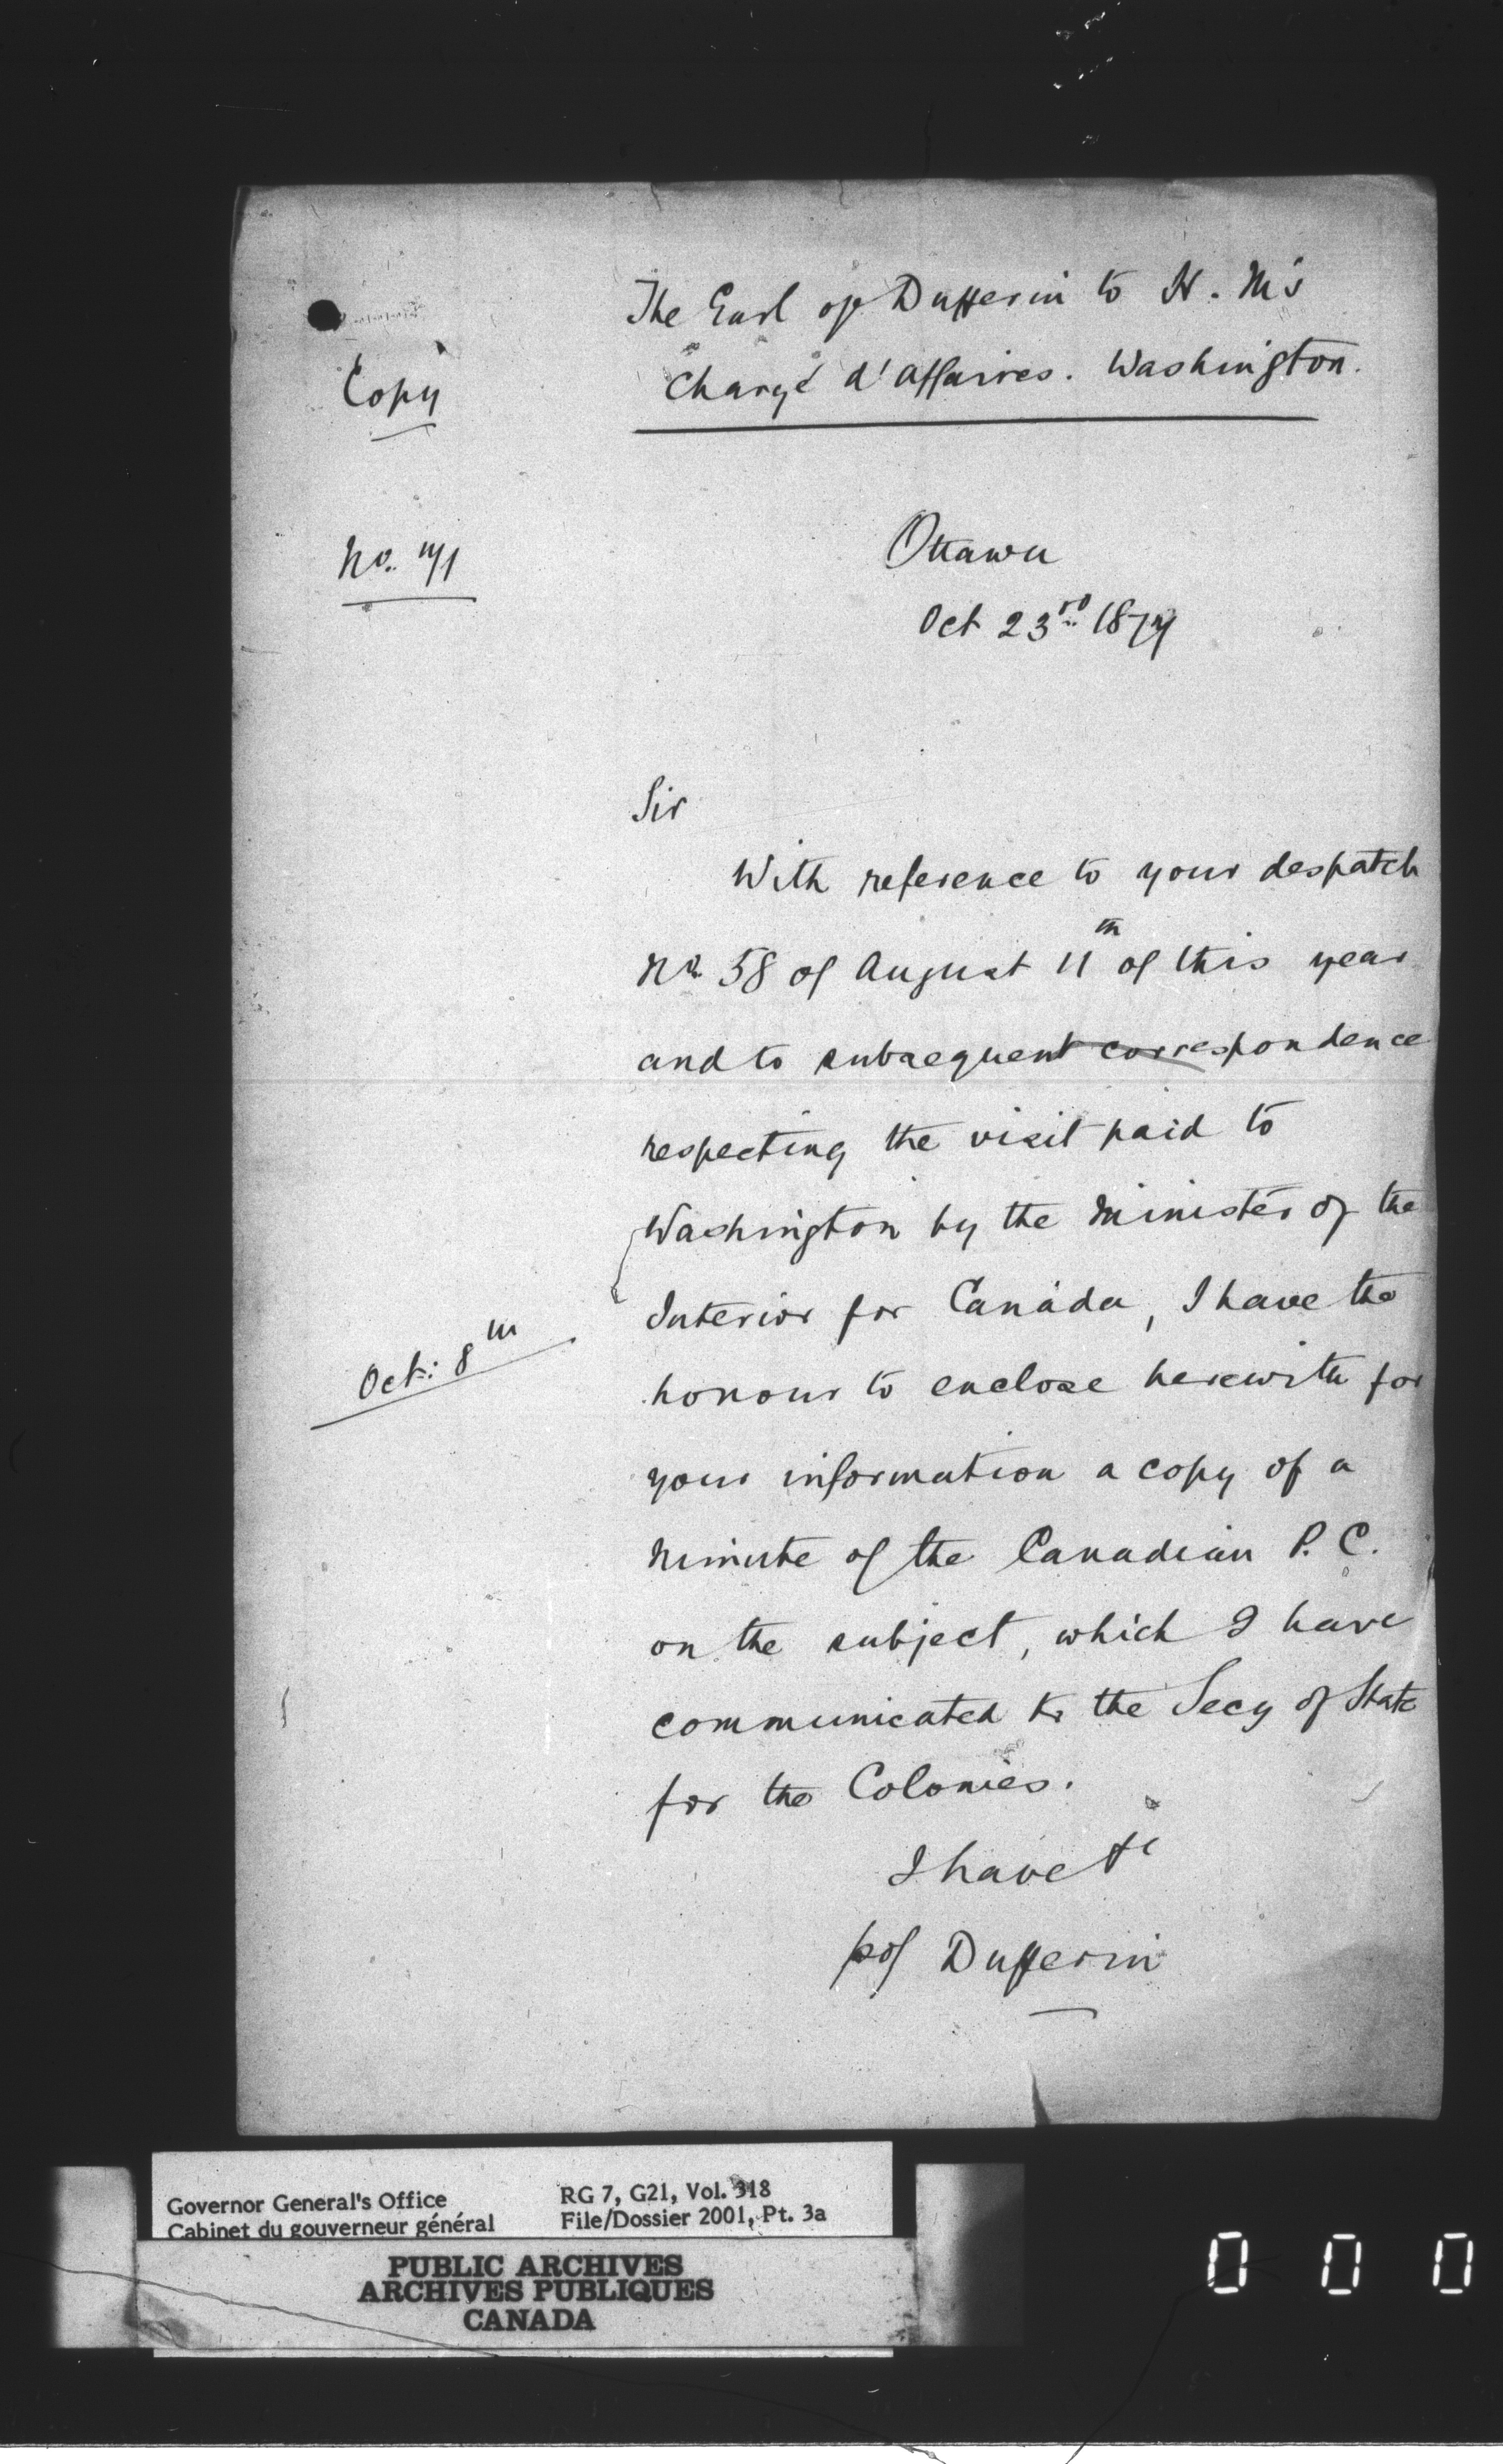 The Earl of Dufferin to H. M's
Chargé d'Affaires. Washington.
Copy
No. 71
Ottawa
Oct 23rd 1877
Sir
With reference to your despatch
No. 58 of August 11th of this year
and to subsequent correspondence
respecting the visit paid to
Washington by the Minister of the
Interior for Canada, I have the
Oct: 8th
honour to enclose herewith for
your information a copy of a
Minute of the Canadian P. C.
on the subject, which I have
communicated to the Secy of State
for the Colonies.
I have &c
Dufferin
Governor General's Office
Cabinet du gouverneur général
RG 7, G21, Vol. 318
File/Dossier 2001, Pt. 3a
PUBLIC ARCHIVES
ARCHIVES PUBLIQUES
CANADA
0 0 0